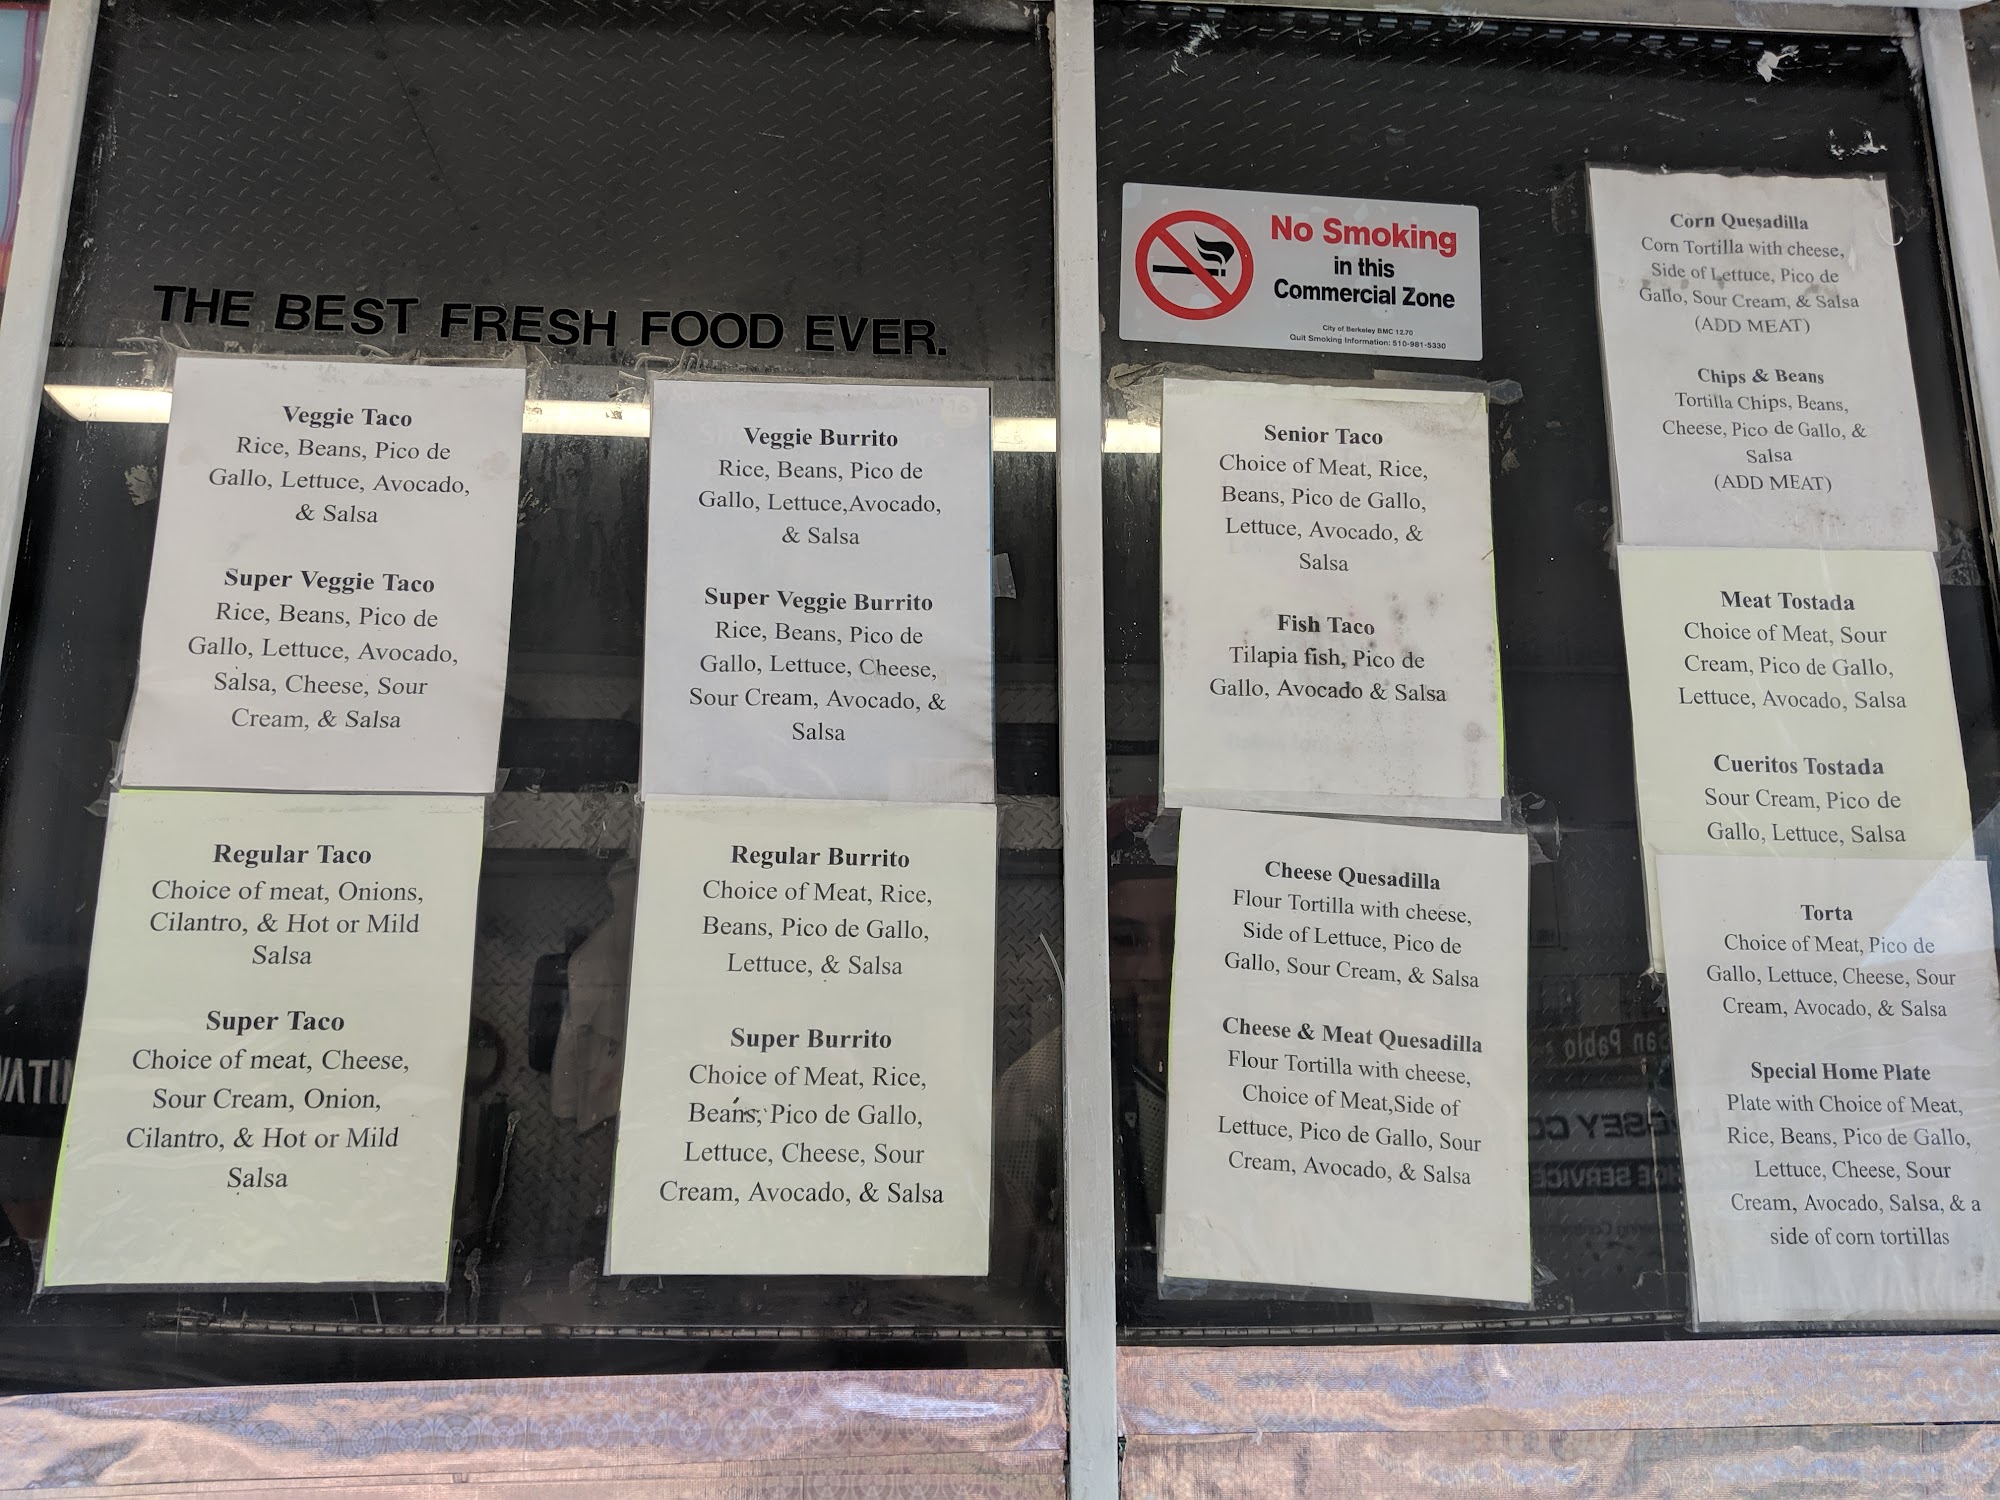 THE BEST FRESH FOOD EVER.
Veggie Taco
Rice, Beans, Pico de
Gallo, Lettuce, Avocado,
& Salsa
Super Veggie Taco
Rice, Beans, Pico de
Gallo, Lettuce, Avocado,
Salsa, Cheese, Sour
Cream, & Salsa
Regular Taco
Choice of meat, Onions,
Cilantro, & Hot or Mild
Salsa
Super Taco
Choice of meat, Cheese,
Sour Cream, Onion,
Cilantro, & Hot or Mild
Salsa
Veggie Burrito
Rice, Beans, Pico de
Gallo, Lettuce,Avocado,
& Salsa
Super Veggie Burrito
Rice, Beans, Pico de
Gallo, Lettuce, Cheese,
Sour Cream, Avocado, &
Salsa
Regular Burrito
Choice of Meat, Rice,
Beans, Pico de Gallo,
Lettuce, & Salsa
Super Burrito
Choice of Meat, Rice,
Beans, Pico de Gallo,
Lettuce, Cheese, Sour
Cream, Avocado, & Salsa
No Smoking
in this
Commercial Zone
City of Berkeley BMC 12.70
Quit Smoking Information: 510-981-5330
Senior Taco
Choice of Meat, Rice,
Beans, Pico de Gallo,
Lettuce, Avocado, &
Salsa
Fish Taco
Tilapia fish, Pico de
Gallo, Avocado & Salsa
Cheese Quesadilla
Flour Tortilla with cheese,
Side of Lettuce, Pico de
Gallo, Sour Cream, & Salsa
Cheese & Meat Quesadilla
Flour Tortilla with cheese,
Choice of Meat,Side of
Lettuce, Pico de Gallo, Sour
Cream, Avocado, & Salsa
Corn Quesadilla
Corn Tortilla with cheese,
Side of Lettuce, Pico de
Gallo, Sour Cream, & Salsa
(ADD MEAT)
Chips & Beans
Tortilla Chips, Beans,
Cheese, Pico de Gallo, &
Salsa
(ADD MEAT)
Meat Tostada
Choice of Meat, Sour
Cream, Pico de Gallo,
Lettuce, Avocado, Salsa
Cueritos Tostada
Sour Cream, Pico de
Gallo, Lettuce, Salsa
Torta
Choice of Meat, Pico de
Gallo, Lettuce, Cheese, Sour
Cream, Avocado, & Salsa
Special Home Plate
Plate with Choice of Meat,
Rice, Beans, Pico de Gallo,
Lettuce, Cheese, Sour
Cream, Avocado, Salsa, & a
side of corn tortillas
San Pablo